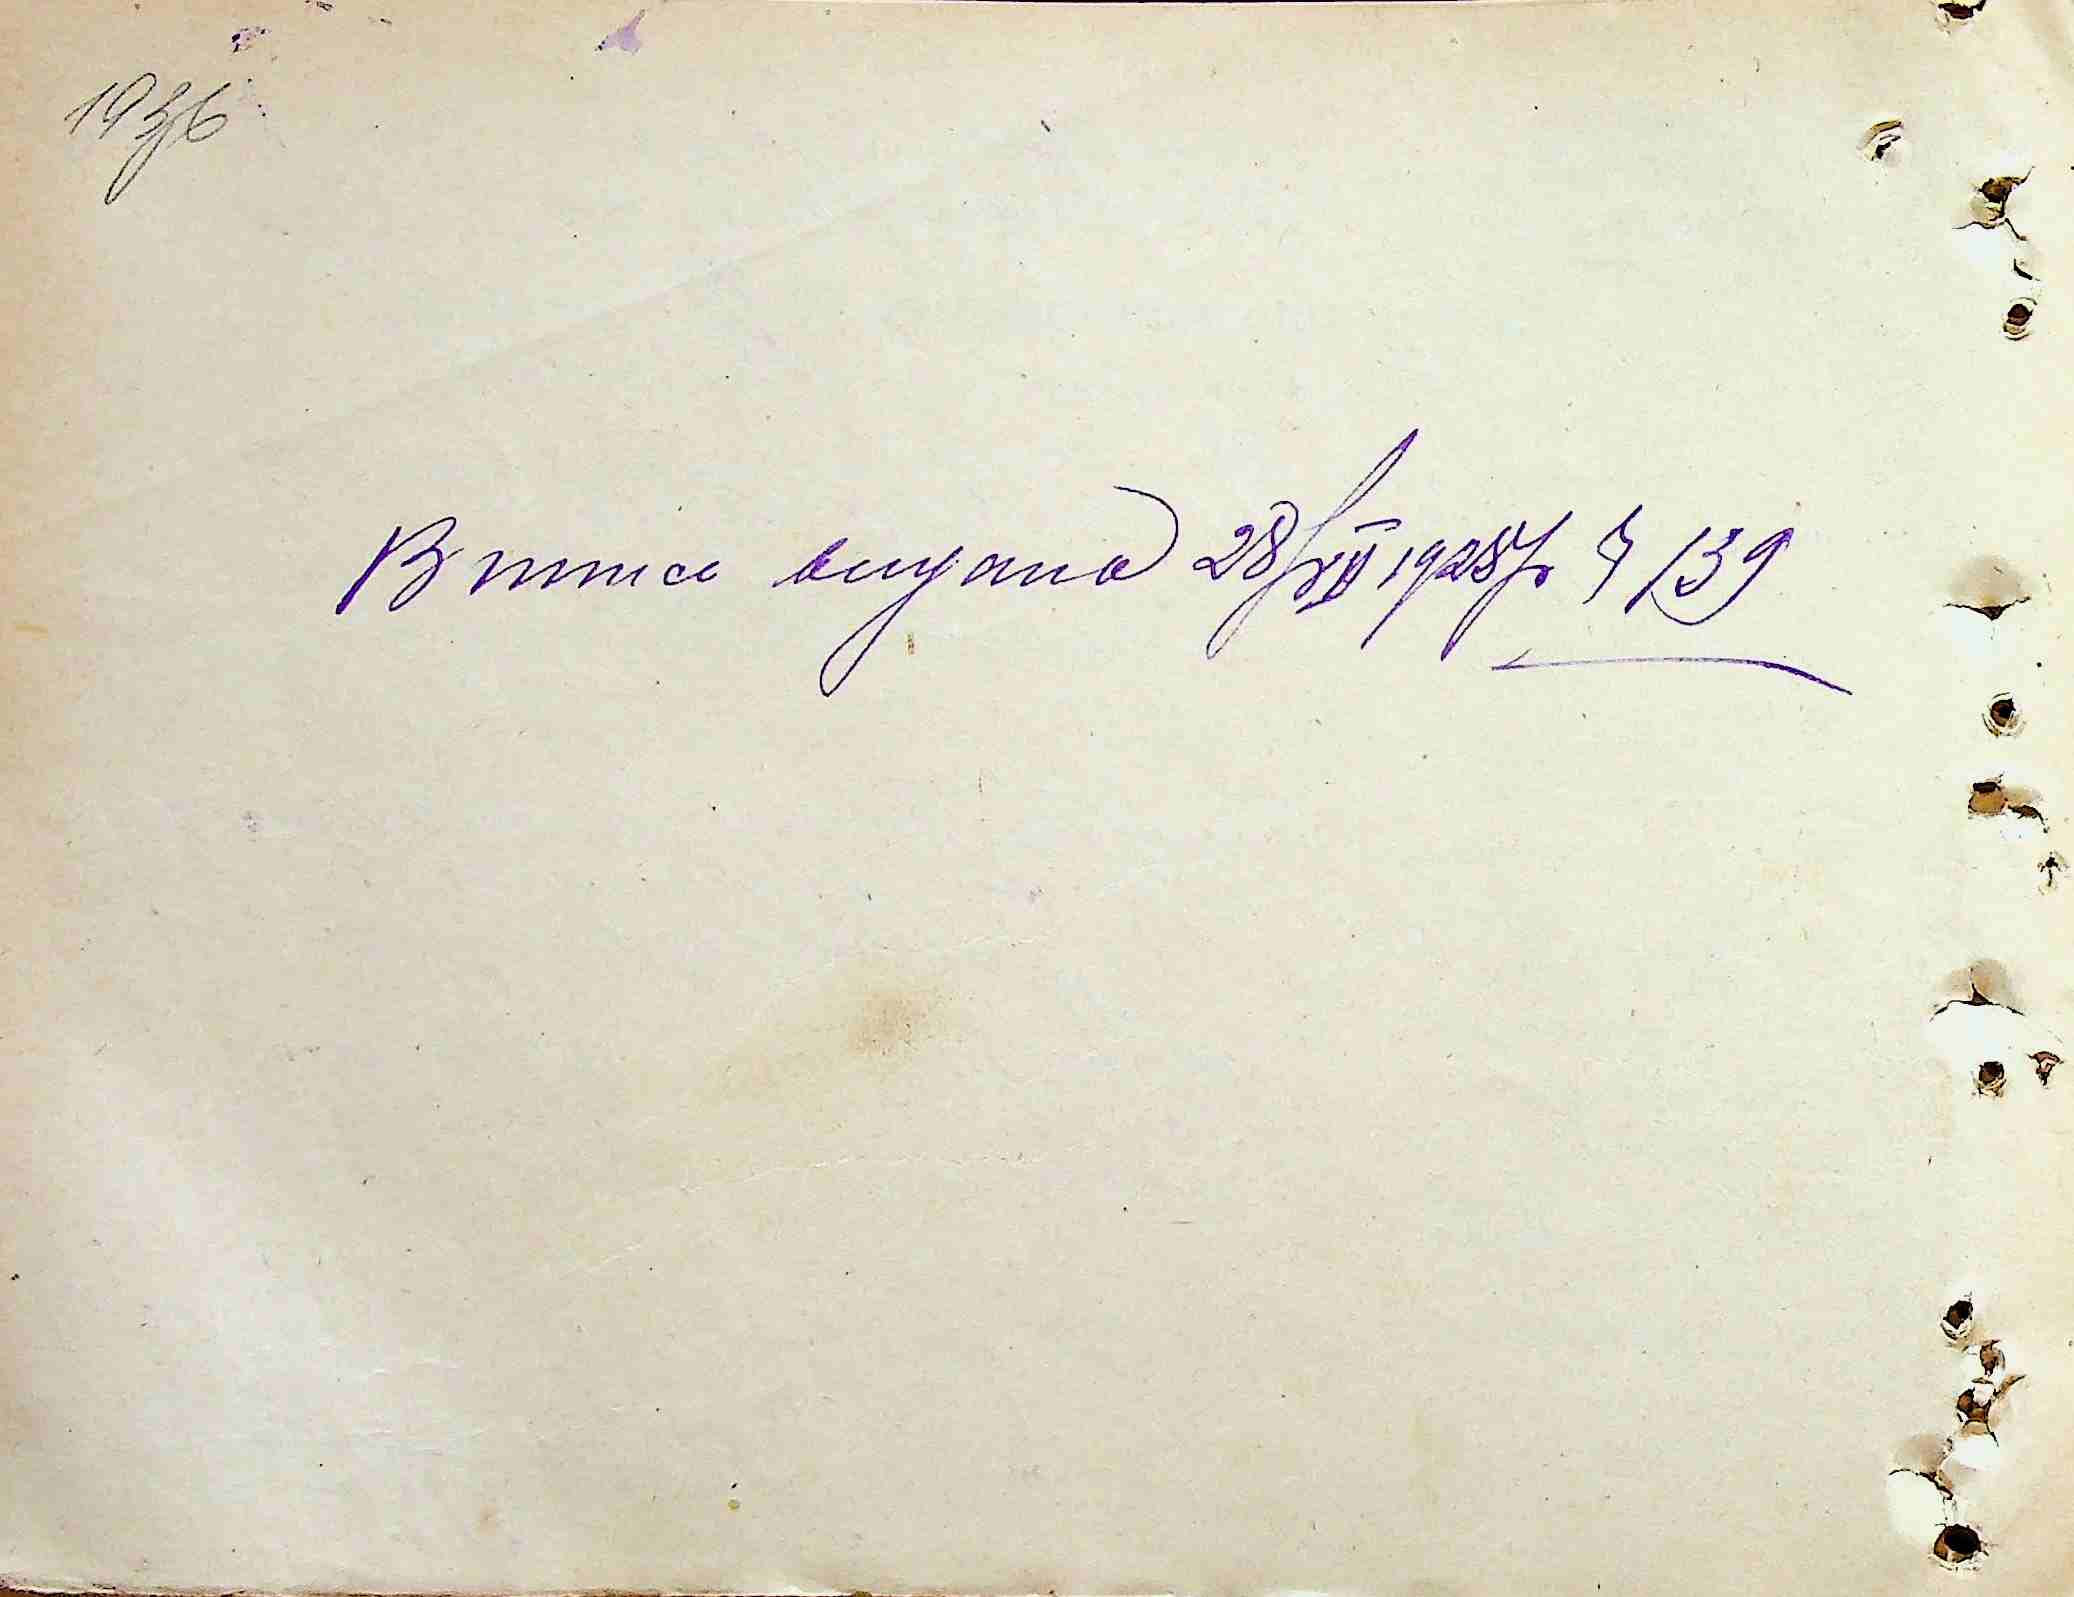 1936
Виписа видана 28/XII 1928 р Ч 139